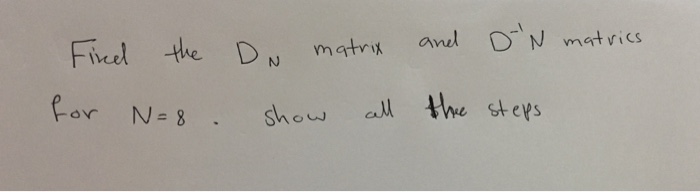 Find the D_N matrix and D^-1 N matrics
for N=8 . show all the steps